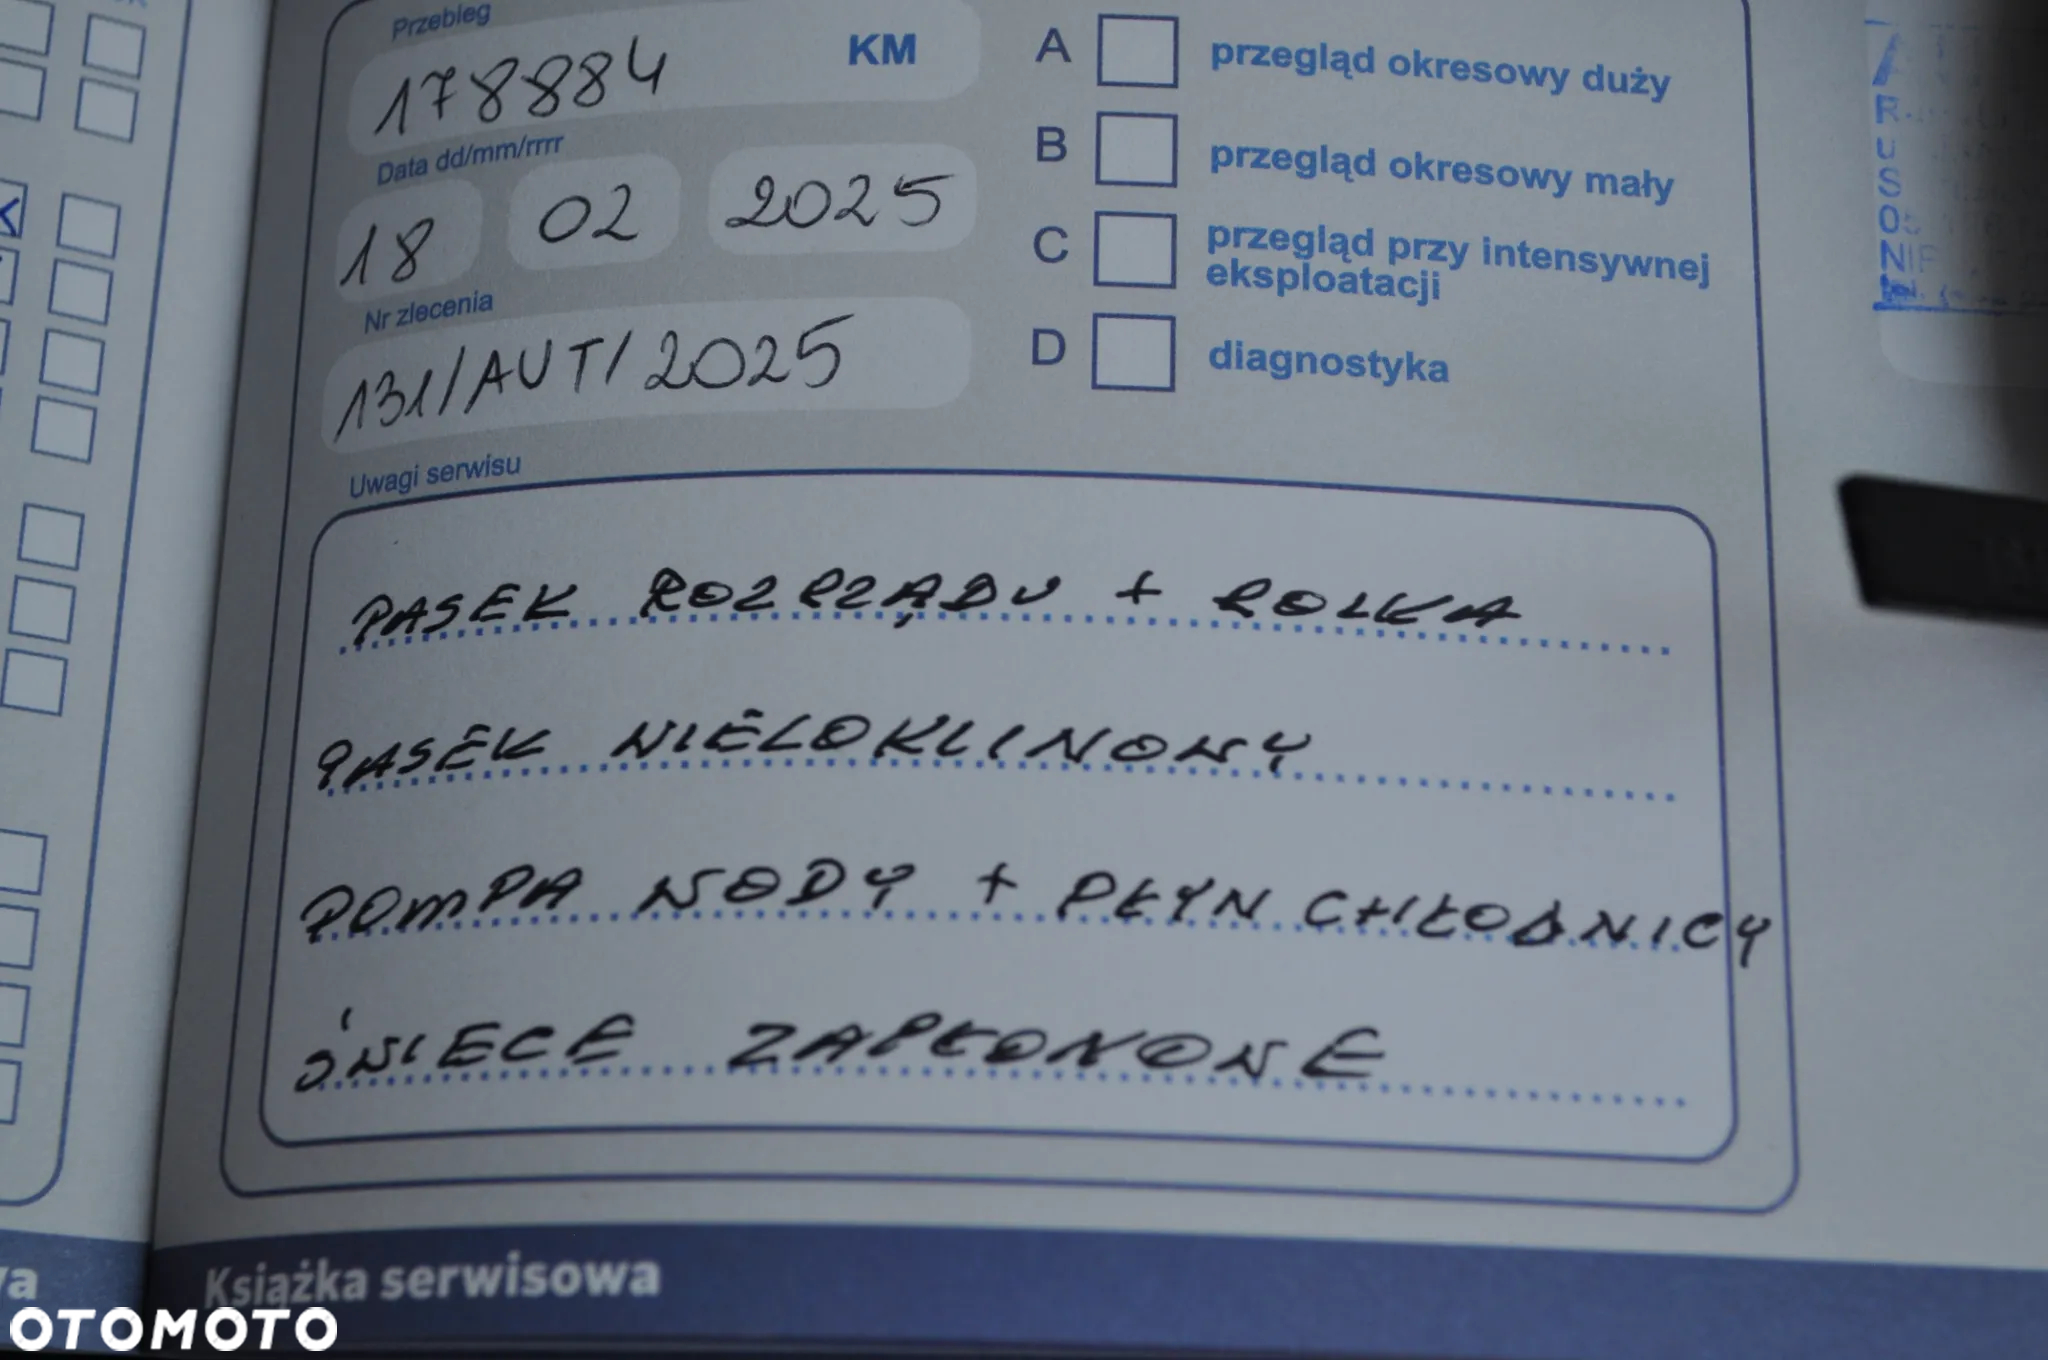 Przebieg
178884 KM
Data dd/mm/rrrr
18 02 2025
Nr zlecenia
131/AUT/2025
A przegląd okresowy duży
B przegląd okresowy mały
C przegląd przy intensywnej
eksploatacji
D diagnostyka
Uwagi serwisu
PASEK ROZRZĄDU + ROLKA
PASEK WIELOKLINOWY
POMPA WODY + PŁYN CHŁODNICY
ŚWIECE ZAPŁONOWE
Książka serwisowa
OTOMOTO
NIP